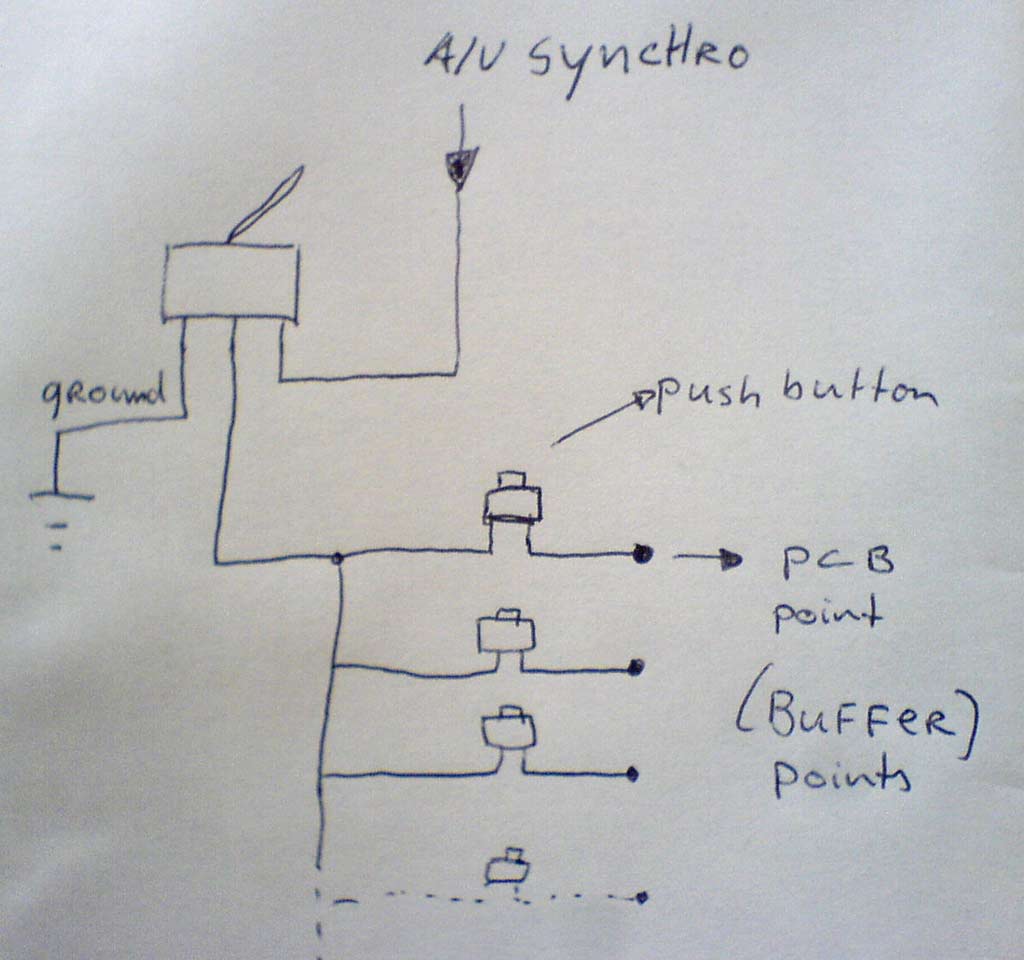 A/V SyncHRO
gRound
push button
PCB
point
(BuFFeR)
points